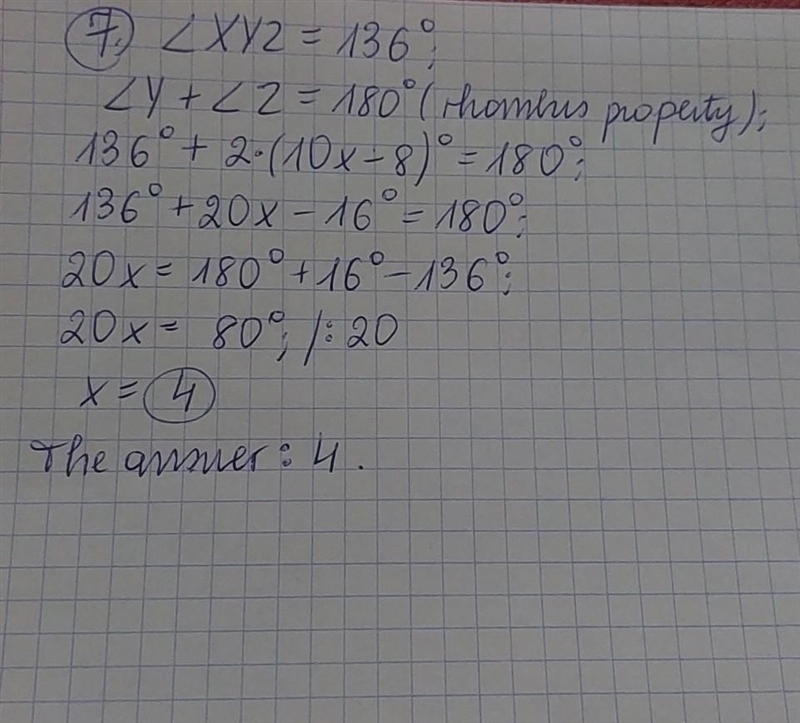 7. ∠XYZ = 136°;
∠Y + ∠Z = 180° (rhombus property);
136° + 2·(10x - 8)° = 180°;
136° + 20x - 16° = 180°;
20x = 180° + 16° - 136°;
20x = 80°; /: 20
x = 4
The answer: 4.